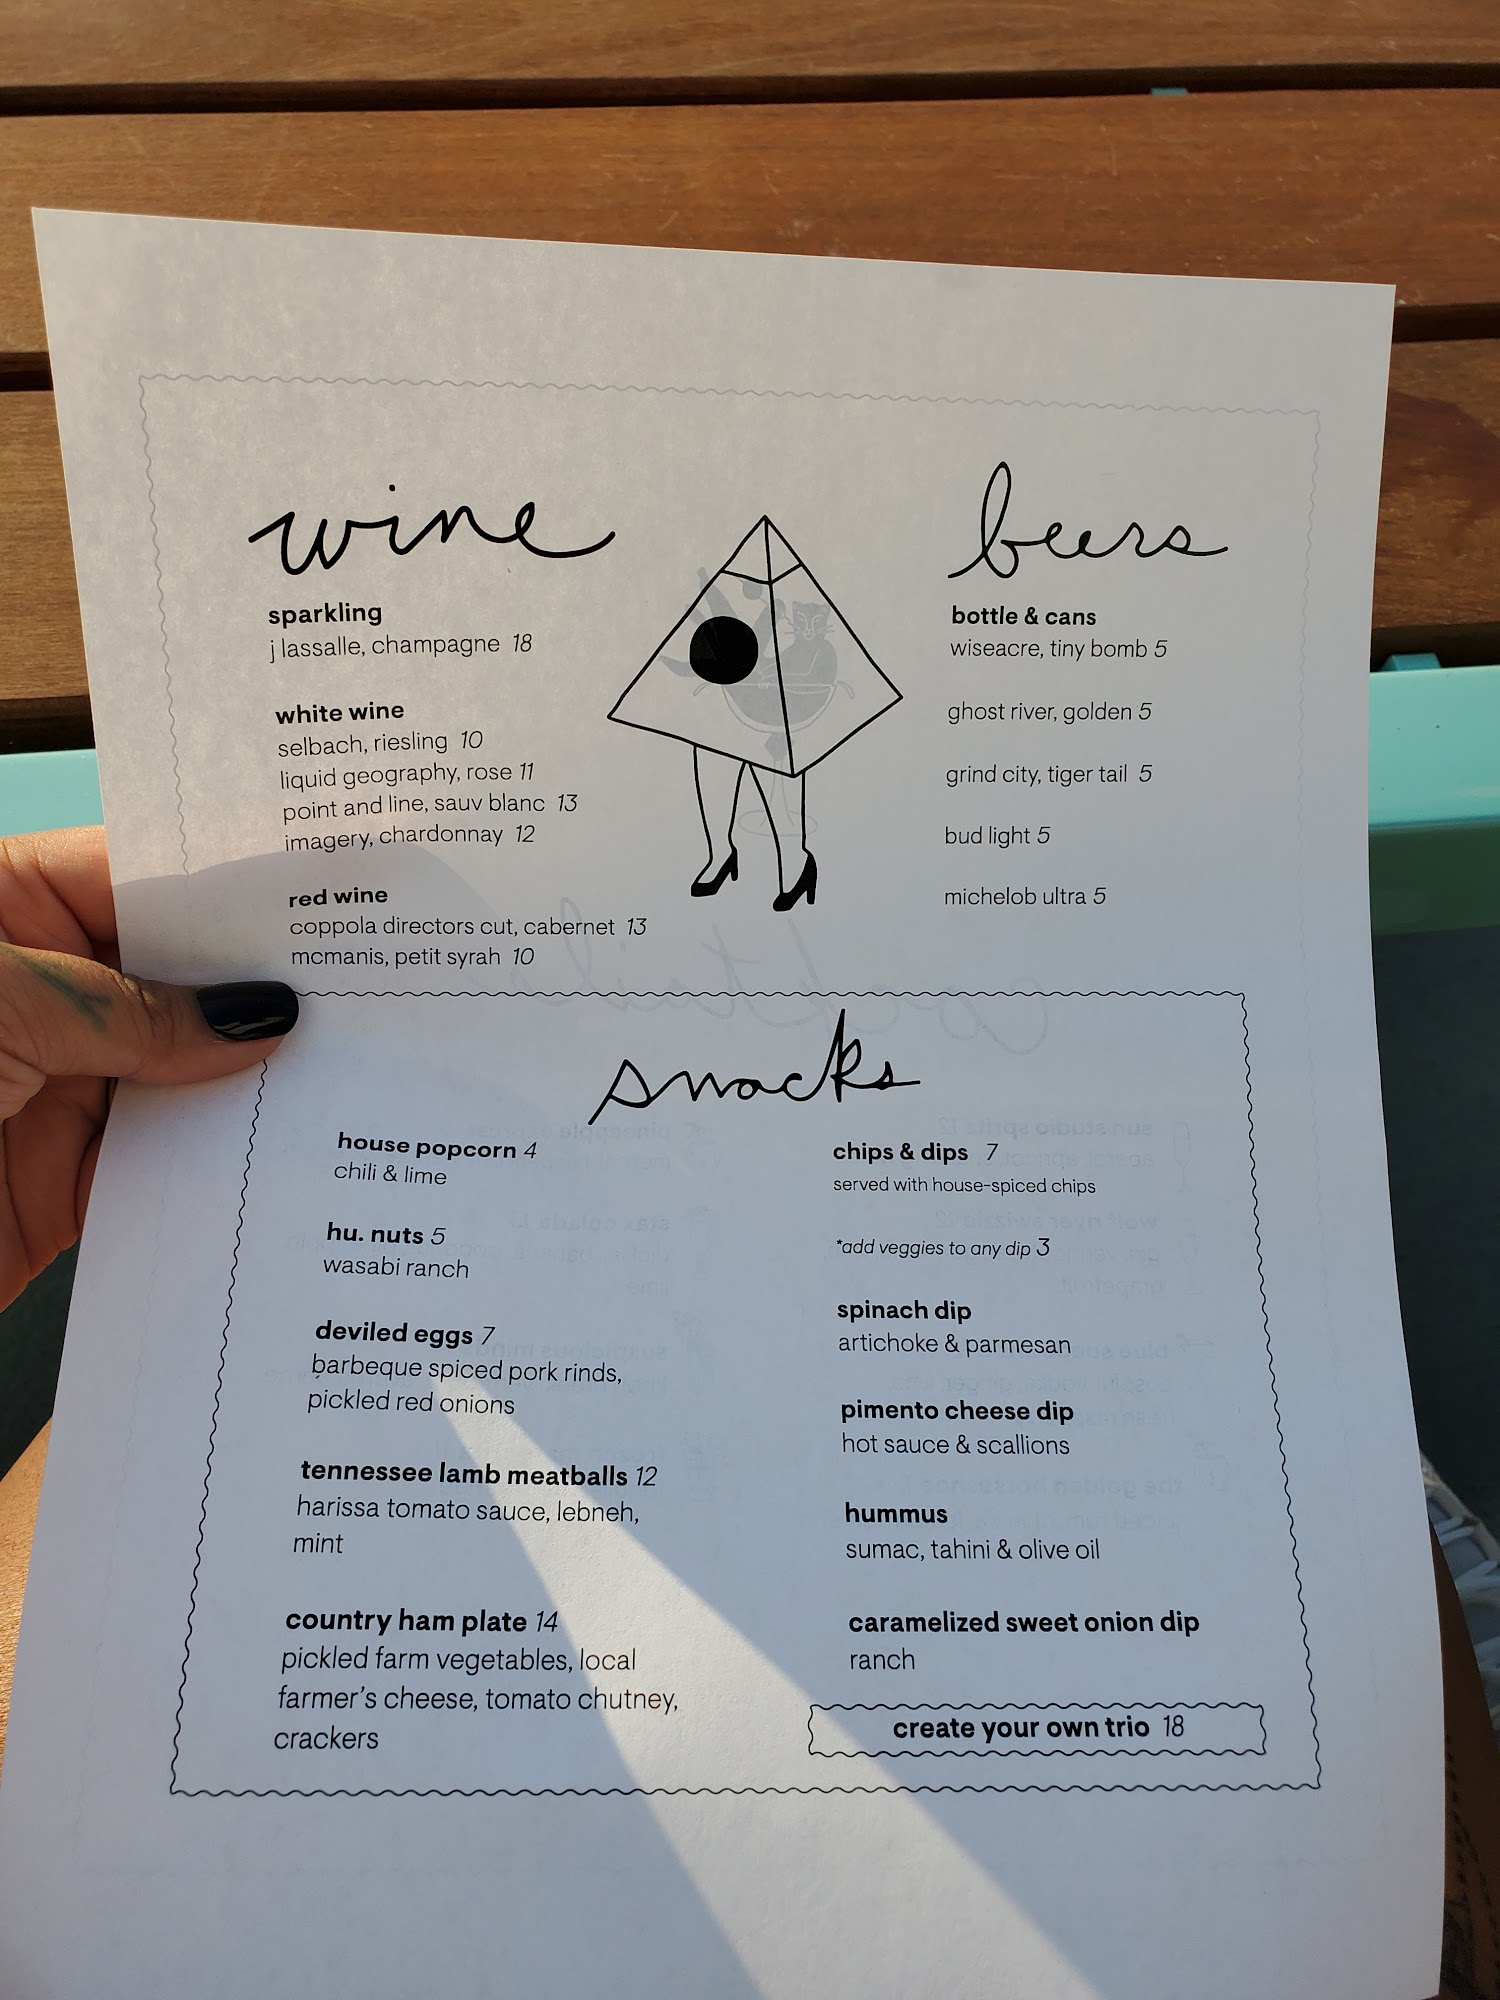 wine
sparkling
j lassalle, champagne 18
white wine
selbach, riesling 10
liquid geography, rose 11
point and line, sauv blanc 13
imagery, chardonnay 12
red wine
coppola directors cut, cabernet 13
mcmanis, petit syrah 10
beers
bottle & cans
wiseacre, tiny bomb 5
ghost river, golden 5
grind city, tiger tail 5
bud light 5
michelob ultra 5
snacks
house popcorn 4
chili & lime
hu. nuts 5
wasabi ranch
deviled eggs 7
barbeque spiced pork rinds,
pickled red onions
tennessee lamb meatballs 12
harissa tomato sauce, lebneh,
mint
country ham plate 14
pickled farm vegetables, local
farmer's cheese, tomato chutney,
crackers
chips & dips 7
served with house-spiced chips
*add veggies to any dip 3
spinach dip
artichoke & parmesan
pimento cheese dip
hot sauce & scallions
hummus
sumac, tahini & olive oil
caramelized sweet onion dip
ranch
create your own trio 18
cocktails